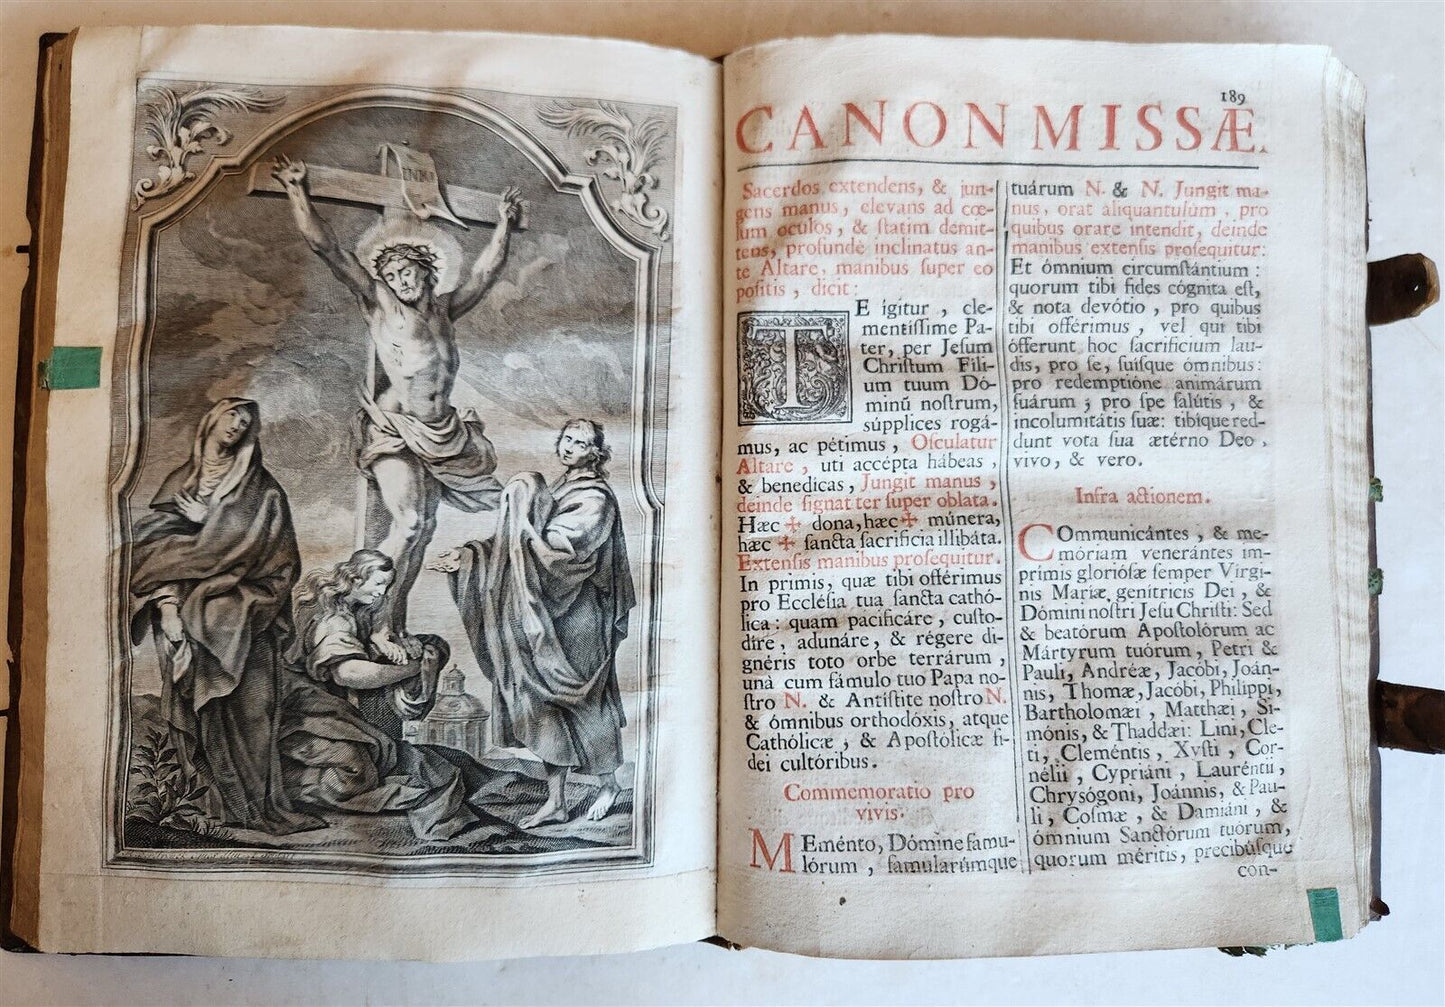 INRI
189
CANON MISSÆ.
Sacerdos extendens, & jun-
gens manus, elevans ad cœ-
lum oculos, & ſtatim demit-
tens, profundè inclinatus an-
te Altare, manibus ſuper eo
poſitis, dicit:
TE ígitur, cle-
mentiſſime Pa-
ter, per Jeſum
Chriſtum Fili-
um tuum Dó-
minũ noſtrum,
súpplices rogá-
mus, ac pétimus, Oſculatur
Altare, uti accépta hábeas,
& benedícas, Jungit manus,
deinde ſignat ter ſuper oblata.
Hæc ✠ dona, hæc ✠ múnera,
hæc ✠ ſancta sacrifícia illibáta.
Extenſis manibus proſequitur.
In primis, quæ tibi offérimus
pro Eccléſia tua ſancta cathó-
lica: quam pacificáre, cuſto-
díre, adunáre, & régere di-
gnéris toto orbe terrárum,
unà cum fámulo tuo Papa no-
ſtro N. & Antíſtite noſtro N.
& ómnibus orthodóxis, atque
Cathólicæ, & Apoſtólicæ fí-
dei cultóribus.
Commemoratio pro
vivis.
MEménto, Dómine famu-
lórum, famularúmque
tuárum N. & N. Jungit ma-
nus, orat aliquantulúm, pro
quibus orare intendit, deinde
manibus extenſis proſequitur:
Et ómnium circumſtántium:
quorum tibi fides cógnita eſt,
& nota devótio, pro quibus
tibi offérimus, vel qui tibi
ófferunt hoc ſacrifícium lau-
dis, pro ſe, ſuíſque ómnibus:
pro redemptióne animárum
ſuárum; pro ſpe ſalútis, &
incolumitátis ſuæ: tibique red-
dunt vota ſua ætérno Deo,
vivo, & vero.
Infra actionem.
COmmunicántes, & me-
móriam venerántes im-
primis glorióſæ ſemper Vírgi-
nis Maríæ, genitrícis Dei, &
Dómini noſtri Jeſu Chriſti: Sed
& beatórum Apoſtolórum ac
Mártyrum tuórum, Petri &
Pauli, Andréæ, Jacóbi, Joán-
nis, Thomæ, Jacóbi, Philíppi,
Bartholomæi, Matthæi, Si-
mónis, & Thaddæi: Lini, Cle-
ti, Cleméntis, Xyſti, Cor-
nélii, Cypriáni, Lauréntii,
Chrysógoni, Joánnis, & Pau-
li, Coſmæ, & Damiáni, &
ómnium Sanctórum tuórum,
quorum méritis, precibúſque
con-